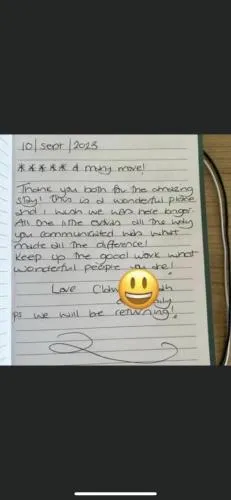 10/sept/2023
***** & many more!
Thank you both for the amazing
stay! This is a wonderful place
and I wish we was here longer.
All the extras all the way
you communicated was what
made all the difference!
Keep up the good work what
wonderful people you are!
Love
ps we will be returning!